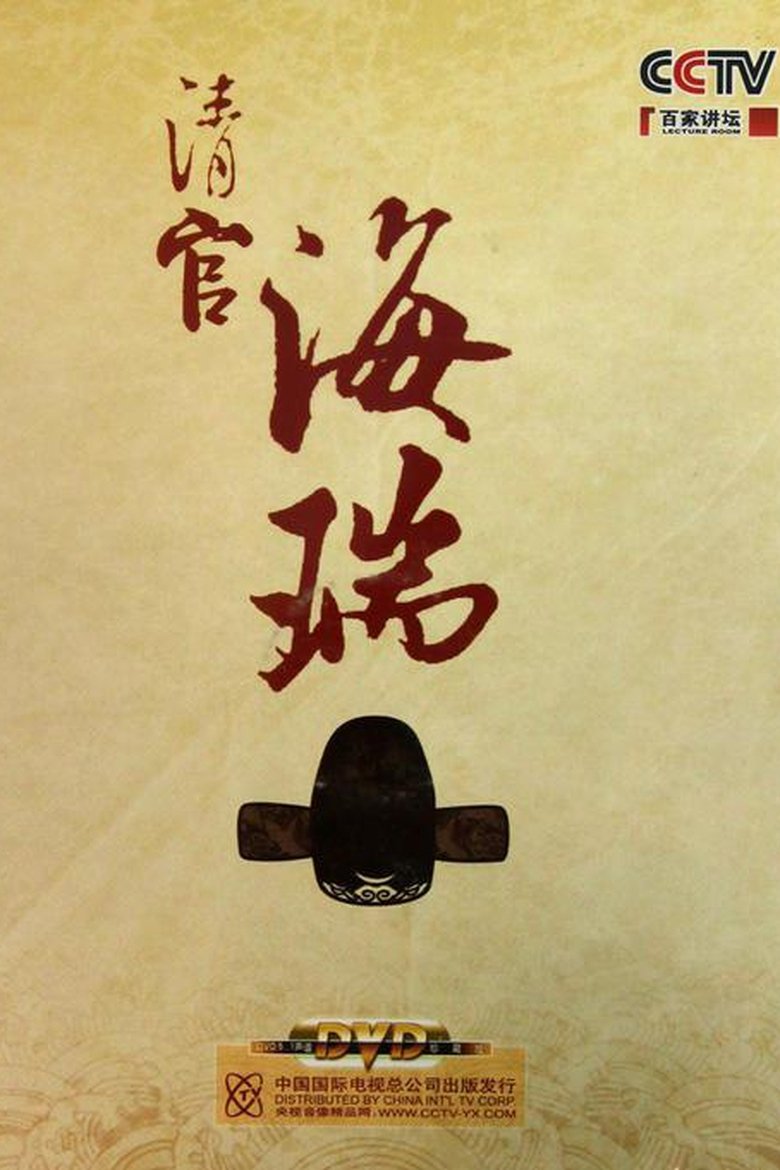 CCTV
百家讲坛
LECTURE ROOM
清官
海瑞
DVD
中国国际电视总公司出版发行
DISTRIBUTED BY CHINA INT'L TV CORP.
央视音像精品网:WWW.CCTV-YX.COM
TV